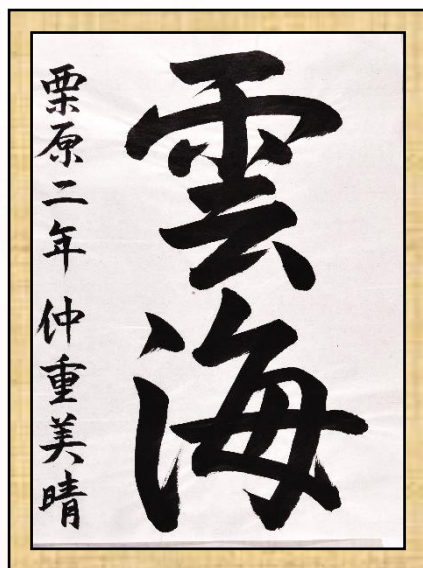 雲海
栗原二年 仲重美晴